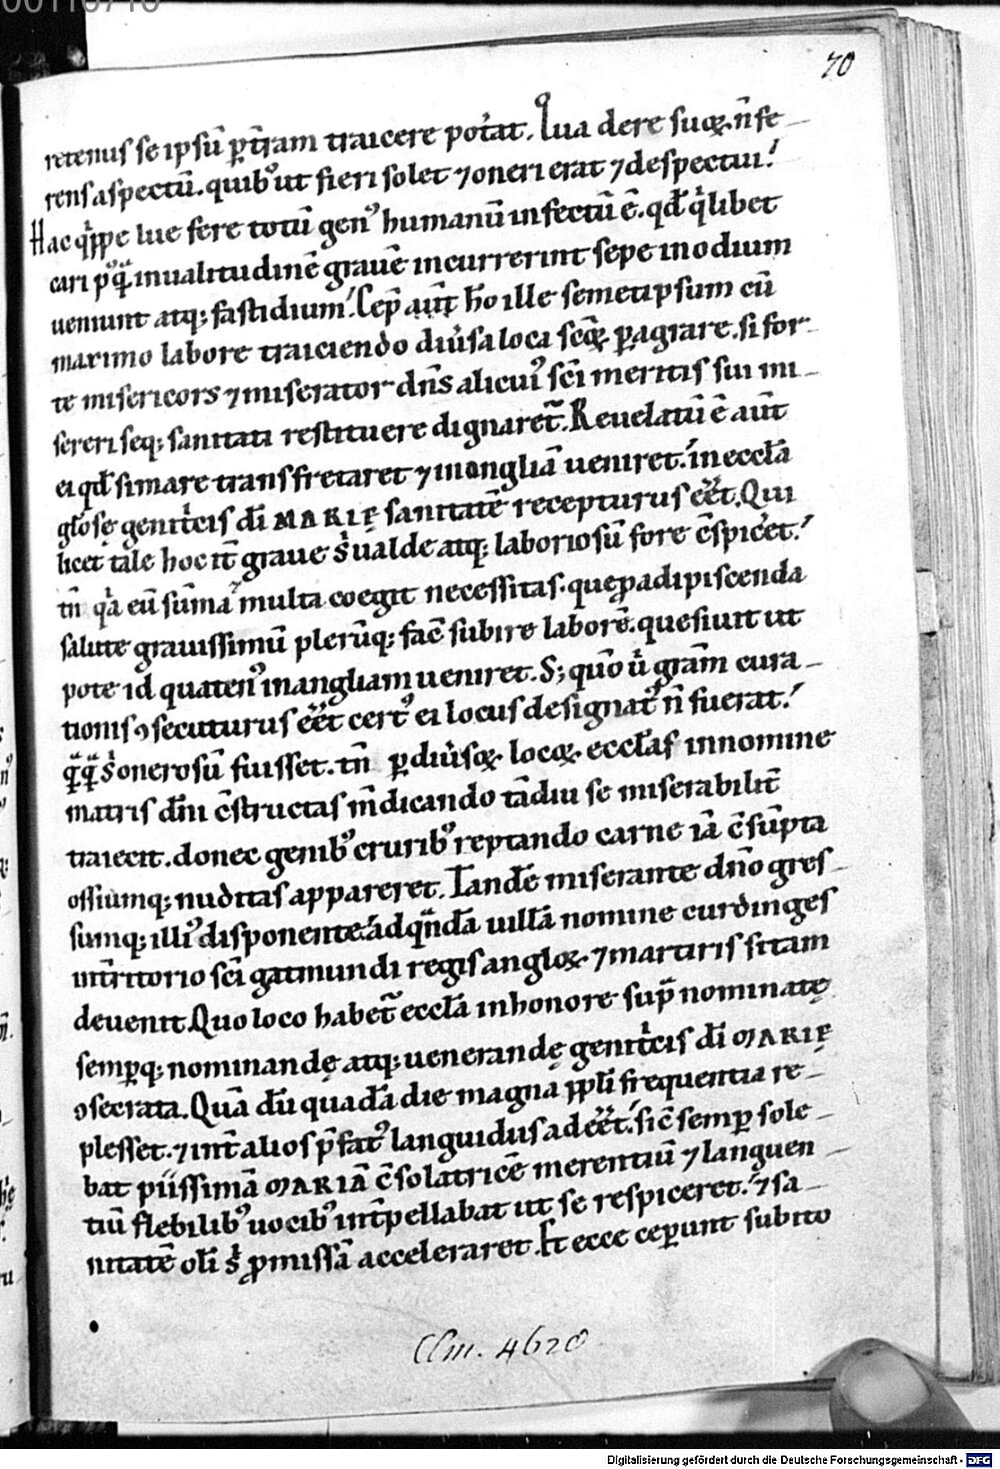 00110716
70
retenus se ipsū ꝑ t̄ram traicere poťat. Qua de re suoꝝ n̄ fe-
rens aspectū. quibꝰ ut fieri solet ⁊ oneri erat ⁊ despectui!
Hac qͥppe lue fere totū genꝰ humanū infectū ē. qd̄ qͥlibet
cari pꝰqͣ inualitudinē grauē incurrerint sepe in odium
ueniunt atq; fastidium! Cep̄ aūt h̄o ille semetipsum cū
maximo labore traiciendo diuͥsa loca sc̄oꝝ ꝑagrare. si for-
te misericors ⁊ miserator dn̄s alicuiꝰ sc̄i meritis sui mi-
sereri seq; sanitati restituere dignaret᷑. Reuelatū ē aūt
ei qd̄ si mare transfretaret ⁊ in angliā ueniret. in eccl̄a
gl̄ose genitͥcis dī MARIĘ sanitatē recepturus eēt. Qui
licet tale hoc iť graue sͥ ualde atq; laboriosū fore c̄spiceͥt!
tn̄ qͥa eū sūma multa coegit necessitas. que ꝓ adipiscenda
salute grauissimū plerūq; fac̄ subire laborē. quesiuit ut
pote id quatenꝰ in angliam ueniret. S; quō uͥ gr̄am cura-
tionis ꝯsecuturus eēt certꝰ ei locus designatꝰ n̄ fuerat!
qͣqͣ sͥ onerosū fuisset. tn̄ ꝑ diuͥsoꝝ locoꝝ eccl̄as in nomine
matris dn̄i c̄structas m̄dicando tādiu se miserabiliť
traiecit. donec genibꝰ cruribꝰ reptando carne iā c̄sūpta
ossiumq; nuditas appareret. Tandē miserante dn̄o gres-
sumq; illiꝰ disponente. ad qn̄dā uillā nomine curdinges
in t̄ritorio sc̄i gatmundi regis angloꝝ ⁊ martiris sitam
deuenit. Quo loco habet᷑ eccl̄a in honore sup̄ nominatę
semꝑq; nominandę atq; uenerandę genitͥcis dī MARIĘ
ꝯsecrata. Quā dū quadā die magna ppl̄i frequentia re-
plesset. ⁊ inť alios p̄fatꝰ languidus adeēt. sic̄ semꝑ sole-
bat piissimā MARIĀ c̄solatricē merentiū ⁊ languen-
tiū flebilibꝰ uocibꝰ inťpellabat ut se respiceret. ⁊ sa-
nitatē oli sͥ ꝓmissā acceleraret. Et ecce ceꝑunt subito
Clm. 4620
Digitalisierung gefördert durch die Deutsche Forschungsgemeinschaft - DFG